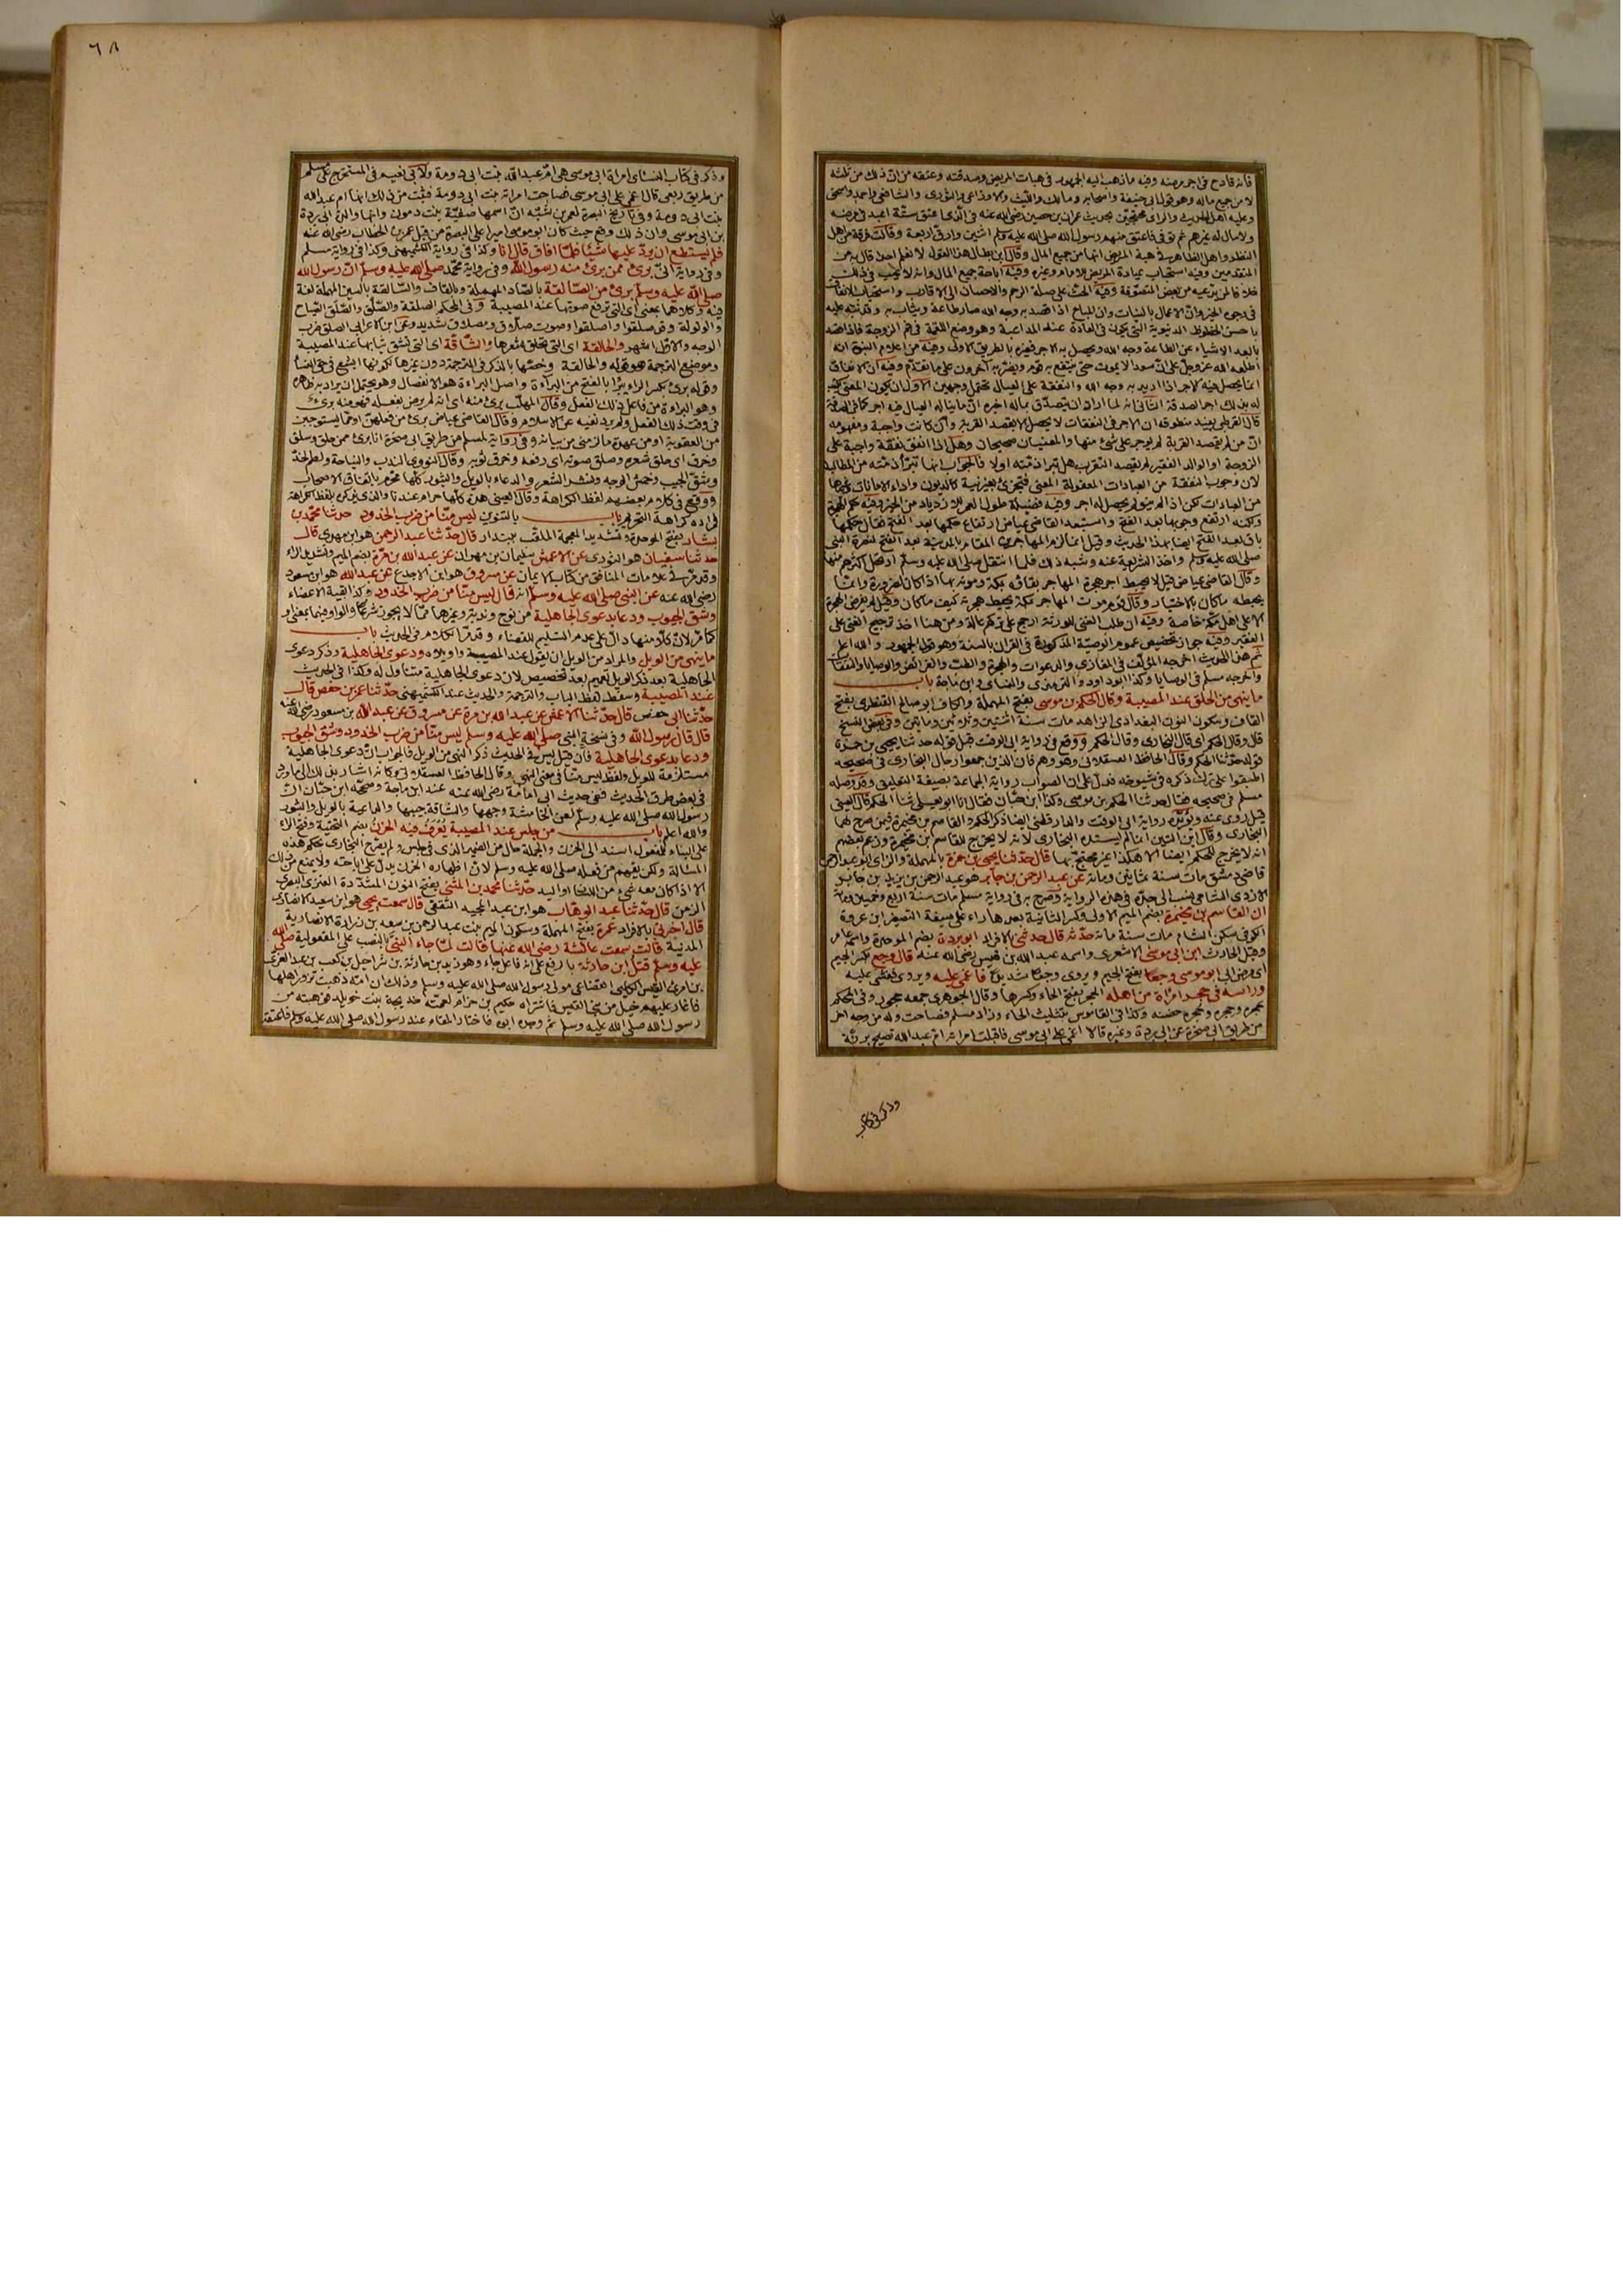 فانه قادح في اجر مرضه وفيه ما ذهب اليه الجمهور في هبات المريض وصدقته وعتقه من ان ذلك من ثلثه
لا من جميع ماله وهو قول ابي حنيفة واصحابه ومالك والليث والاوزاعي والثوري والشافعي واحمد واسحق
وعليه اهل الحديث والراي محتجين بحديث عمران بن حصين رضي الله عنه في الذي اعتق ستة اعبد في مرضه
ولا مال له غيرهم ثم توفي فاعتق منهم رسول الله صلى الله عليه وسلم اثنين وارق اربعة وقالت فرقة من اهل
النظر واهل الظاهر في هبة المريض انها من جميع المال وقال ابن بطال هذا القول لا نعلم احدا قال به من
المتقدمين وفيه استحباب عيادة المريض للامام وغيره وفيه اباحة جميع المال وانه لا عيب في ذلك
خلافا لمن يدعيه من بعض المتصوفة وفيه الحث على صلة الرحم والاحسان الى الاقارب واستحباب الانفاق
في وجوه الخير وان الاعمال بالنيات وان المباح اذا قصد به وجه الله صار طاعة ويثاب به وقد نبه عليه
باحسن الحظوظ الدنيوية التي يكون في العادة عند المداعبة وهو وضع اللقمة في فم الزوجة فاذا قصد
بابعد الاشياء عن الطاعة وجه الله ويحصل به الاجر فغيره بالطريق الاولى وفيه من اعلام النبوة انه
اطلعه الله عز وجل على ان سعدا لا يموت حتى ينتفع به قوم ويضر به آخرون على ما تقدم وفيه ان الانفاق
انما يحصل فيه الاجر اذا اريد به وجه الله والنفقة على العيال تحتمل وجهين الاول ان يكون المعنى يكتب
له بذلك اجر الصدقة الثاني انه لما اراد ان يتصدق بماله اخبره ان ما يناله العيال فيه اجر كما في الصدقة
قال القرطبي يفيد منطوقه ان الاجر في النفقات لا يحصل الا بقصد القربة وان كانت واجبة ومفهومه
ان من لم يقصد القربة لم يوجر على شيء منها والمعنيان صحيحان وهل اذا انفق نفقة واجبة على
الزوجة او الوالد الفقير لم يقصد التقرب هل تبرا ذمته اولا فالجواب انها تبرأ ذمته من المطالبة
لان وجوب النفقة من العبادات المعقولة المعنى فتجزئ بغير نية كالديون واداء الامانات وغيرها
من العبادات لكن اذا لم ينو لم يحصل له اجر وفيه فضيلة طول العمر للازدياد من الخير وفيه حكم الهجرة
صلى الله عليه وسلم واخذ الشريعة عنه وشبه ذلك فلما انتقل صلى الله عليه وسلم ارتحل اكثرهم منها
وقال القاضي عياض قيل لا يحبط اجر هجرة المهاجر بقاؤه بمكة وموته بها اذا كان لضرورة وانما
يحبطه ما كان بالاختيار وقال قوم موت المهاجر بمكة يحبط هجرته كيف ما كان وقيل لم يفرض الهجرة
الا على اهل مكة خاصة وفيه ان طلب الغنى للورثة ارجح على تركهم عالة ومن هنا اخذ ترجيح الغني على
الفقير وفيه جواز تخصيص عموم الوصية المذكورة في القران بالسنة وهو قول الجمهور والله اعلم
ثم هذا الحديث اخرجه المؤلف في المغازي والدعوات والهجرة والطب والفرائض والوصايا والنفقات
واخرجه مسلم في الوصايا وكذا ابو داود والترمذي والنسائي وابن ماجة باب
ما ينهى من الحلق عند المصيبة وقال الحكم بن موسى بفتح المهملة والكاف ابو صالح القنطري بفتح
القاف وسكون النون البغدادي الزاهد مات سنة اثنتين وثلاثين ومايتين وفي بعض النسخ
قال وقال الحكم اي قال البخاري وقال الحكم ووقع في رواية ابي الوقت قبل قوله حدثنا يحيى بن حمزة
قوله حدثنا الحكم وقال الحافظ العسقلاني وهو وهم فان الذين جمعوا رجال البخاري في صحيحه
اطبقوا على ترك ذكره في شيوخه فدل على ان الصواب رواية الجماعة بصيغة التعليق وقد وصله
مسلم في صحيحه فقال حدثنا الحكم بن موسى وكذا ابن حبان فقال انا ابو يعلى ثنا الحكم قال العيني
البخاري وقال ابن التين انما لم يسنده البخاري لانه لا يخرج للقاسم بن مخيمرة وزعم بعضهم
انه لا يخرج للحكم ايضا الا هكذا غير محتج بها قال حدثنا يحيى بن حمزة بالمهملة والزاي ابو عبد الرحمن
قاضي دمشق مات سنة ثمانين ومائة عن عبد الرحمن بن جابر هو عبد الرحمن بن يزيد بن جابر
الازدي الشامي نسب الى جده في هذه الرواية وصرح به في رواية مسلم مات سنة اربع وخمسين ومائة
ان القاسم بن مخيمرة بضم الميم الاولى وكسر الثانية بعدها راء على صيغة التصغير ابن عروة
الكوفي سكن الشام مات سنة مائة حدثه قال حدثني بالافراد ابو بردة بضم الموحدة واسمه عامر
وقيل الحارث ابن ابي موسى الاشعري واسمه عبد الله بن قيس رضي الله عنه قال وجع بكسر الجيم
اي مرض ابي ابو موسى وجعا بفتح الجيم ويروى وجعا شديدا فاغمي عليه ويروى فغشي عليه
وراسه في حجر امراة من اهله الحجر بفتح الحاء وكسرها وقال الجوهري جمعه حجور وفي المحكم
حجره وحجره وحجره حضنه وكذا في القاموس بتثليث الحاء وزاد مسلم فصاحت وله من وجه اخر
من طريق ابي صخرة عن ابي بردة وغيره قالا اغمي على ابي موسى فاقبلت امراته ام عبد الله تصيح برنة
وذكر في كتاب
٦٨
وذكر في كتاب النسائي امراة ابي موسى هي ام عبد الله بنت ابي دومة ولابي نعيم في المستخرج على مسلم
من طريق ربعي قال اغمي على ابي موسى فصاحت امراته بنت ابي دومة فثبت من ذلك انها ام عبد الله
بنت ابي دومة وفي تاريخ البصرة لعمر بن شبه ان اسمها صفية بنت دمون وانها والدة ابي بردة
بن ابي موسى وان ذلك وقع حيث كان ابو موسى اميرا على البصرة من قبل عمر بن الخطاب رضي الله عنه
فلم يستطع ان يرد عليها شيئا فلما افاق قال انا وكذا في رواية الكشميهني وكذا في رواية مسلم
وفي رواية اني بريء ممن برئ منه رسول الله وفي رواية محمد صلى الله عليه وسلم ان رسول الله
صلى الله عليه وسلم برئ من الصالقة بالصاد المهملة وبالقاف والسالقة بالسين المهملة لغة
فيه وكلاهما بمعنى اي التي ترفع صوتها عند المصيبة وفي المحكم الصلقة والصلق والصلق الصياح
والولولة وقد صلقوا واصلقوا وصوت صلاق ومصلاق شديد وعن ابن الاعرابي الصلق ضرب
الوجه والاول اشهر والحالقة اي التي تحلق شعرها والشاقة اي التي تشق ثيابها عند المصيبة
وموضع الترجمة هو قوله والحالقة وخصها بالذكر في الترجمة دون غيرها لكونها ابشع في حق النساء
وقوله برئ بكسر الراء يبرا بالفتح من البراءة واصل البراءة هو الانفصال وهو يحتمل ان يراد به ظاهره
وهو البراءة من فاعل ذلك الفعل وقال المهلب برئ منه اي انه لم يرض بفعله فهو منه بريء
في وقت ذلك الفعل ولم يرد نفيه عن الاسلام وقال القاضي عياض برئ من فعلهن او مما يستوجبن
من العقوبة او من عهدة ما لزمني من بيانه وفي رواية لمسلم من طريق ابي صخرة انا بريء ممن حلق وسلق
وخرق اي حلق شعره وصلق صوته اي رفعه وخرق ثوبه وقال النووي الندب والنياحة ولطم الخد
وشق الجيب وخمش الوجه ونشر الشعر والدعاء بالويل والثبور كلها محرم باتفاق الاصحاب
ووقع في كلام بعضهم لفظ الكراهة وقال العيني هذه كلها حرام عندنا والذي يذكره بلفظ الكراهة
فمراده كراهة التحريم باب بالتنوين ليس منا من ضرب الخدود حدثنا محمد بن
بشار بفتح الموحدة وتشديد المعجمة الملقب ببندار قال حدثنا عبد الرحمن هو ابن مهدي قال
حدثنا سفيان هو الثوري عن الاعمش سليمان بن مهران عن عبد الله بن مرة بضم الميم وتشديد الراء
وقد مر في علامات المنافق من كتاب الايمان عن مسروق هو ابن الاجدع عن عبد الله هو ابن مسعود
رضي الله عنه عن النبي صلى الله عليه وسلم انه قال ليس منا من ضرب الخدود وكذا بقية الاعضاء
وشق الجيوب ودعا بدعوى الجاهلية من نوح وندبة وغيرهما مما لا يجوز شرعا والواو فيهما بمعنى او
كما مر لان كلا منها دال على عدم التسليم للقضاء وقد مر الكلام في الحديث باب
ما ينهى من الويل والمراد من الويل ان يقول عند المصيبة واويلاه ودعوى الجاهلية وذكر دعوى
الجاهلية بعد ذكر الويل تعميم بعد تخصيص لان دعوى الجاهلية متناول له وكذا في الحديث
عند المصيبة وسقط لفظ الباب والترجمة والحديث عند الكشميهني حدثنا عمر بن حفص قال
حدثنا ابي حفص قال حدثنا الاعمش عن عبد الله بن مرة عن مسروق عن عبد الله بن مسعود رضي الله عنه
قال قال رسول الله وفي نسخة النبي صلى الله عليه وسلم ليس منا من ضرب الخدود وشق الجيوب
ودعا بدعوى الجاهلية فان قيل ليس في الحديث ذكر النهي من الويل فالجواب ان دعوى الجاهلية
مستلزمة للويل ولفظ ليس منا في معنى النهي وقال الحافظ العسقلاني وكانه اشار بذلك الى ما ورد
في بعض طرق الحديث ففي حديث ابي امامة رضي الله عنه عند ابن ماجة وصححه ابن حبان ان
رسول الله صلى الله عليه وسلم لعن الخامشة وجهها والشاقة جيبها والداعية بالويل والثبور
والله اعلم باب من جلس عند المصيبة يعرف فيه الحزن بضم التحتية وفتح الراء
على البناء للمفعول اسند الى الحزن والجملة حال من الضمير الذي في جلس ولم يصرح البخاري بحكم هذه
المسالة ولكن يفهم من فعله صلى الله عليه وسلم لان اظهاره الحزن يدل على اباحته ولا يمنع من ذلك
الا اذا كان معه شيء من اللسان او اليد حدثنا محمد بن المثنى بفتح النون المشددة العنزي البصري
الزمن قال حدثنا عبد الوهاب هو ابن عبد المجيد الثقفي قال سمعت يحيى هو ابن سعيد الانصاري
قال اخبرتني بالافراد عمرة بفتح المهملة وسكون الميم بنت عبد الرحمن بن سعد بن زرارة الانصارية
المدنية قالت سمعت عائشة رضي الله عنها قالت لما جاء النبي بالنصب على المفعولية صلى الله
عليه وسلم قتل ابن حارثة بالرفع على انه فاعل جاء وهو زيد بن حارثة بن شراحيل بن كعب بن عبد العزى
بن امرئ القيس الكلبي القضاعي مولى رسول الله صلى الله عليه وسلم وذلك ان امه ذهبت تزور اهلها
فاغار عليهم خيل من بني القين فاشتراه حكيم بن حزام لعمته خديجة بنت خويلد فوهبته من
رسول الله صلى الله عليه وسلم ثم وجده ابوه فاختار المقام عند رسول الله صلى الله عليه وسلم فاعتقه